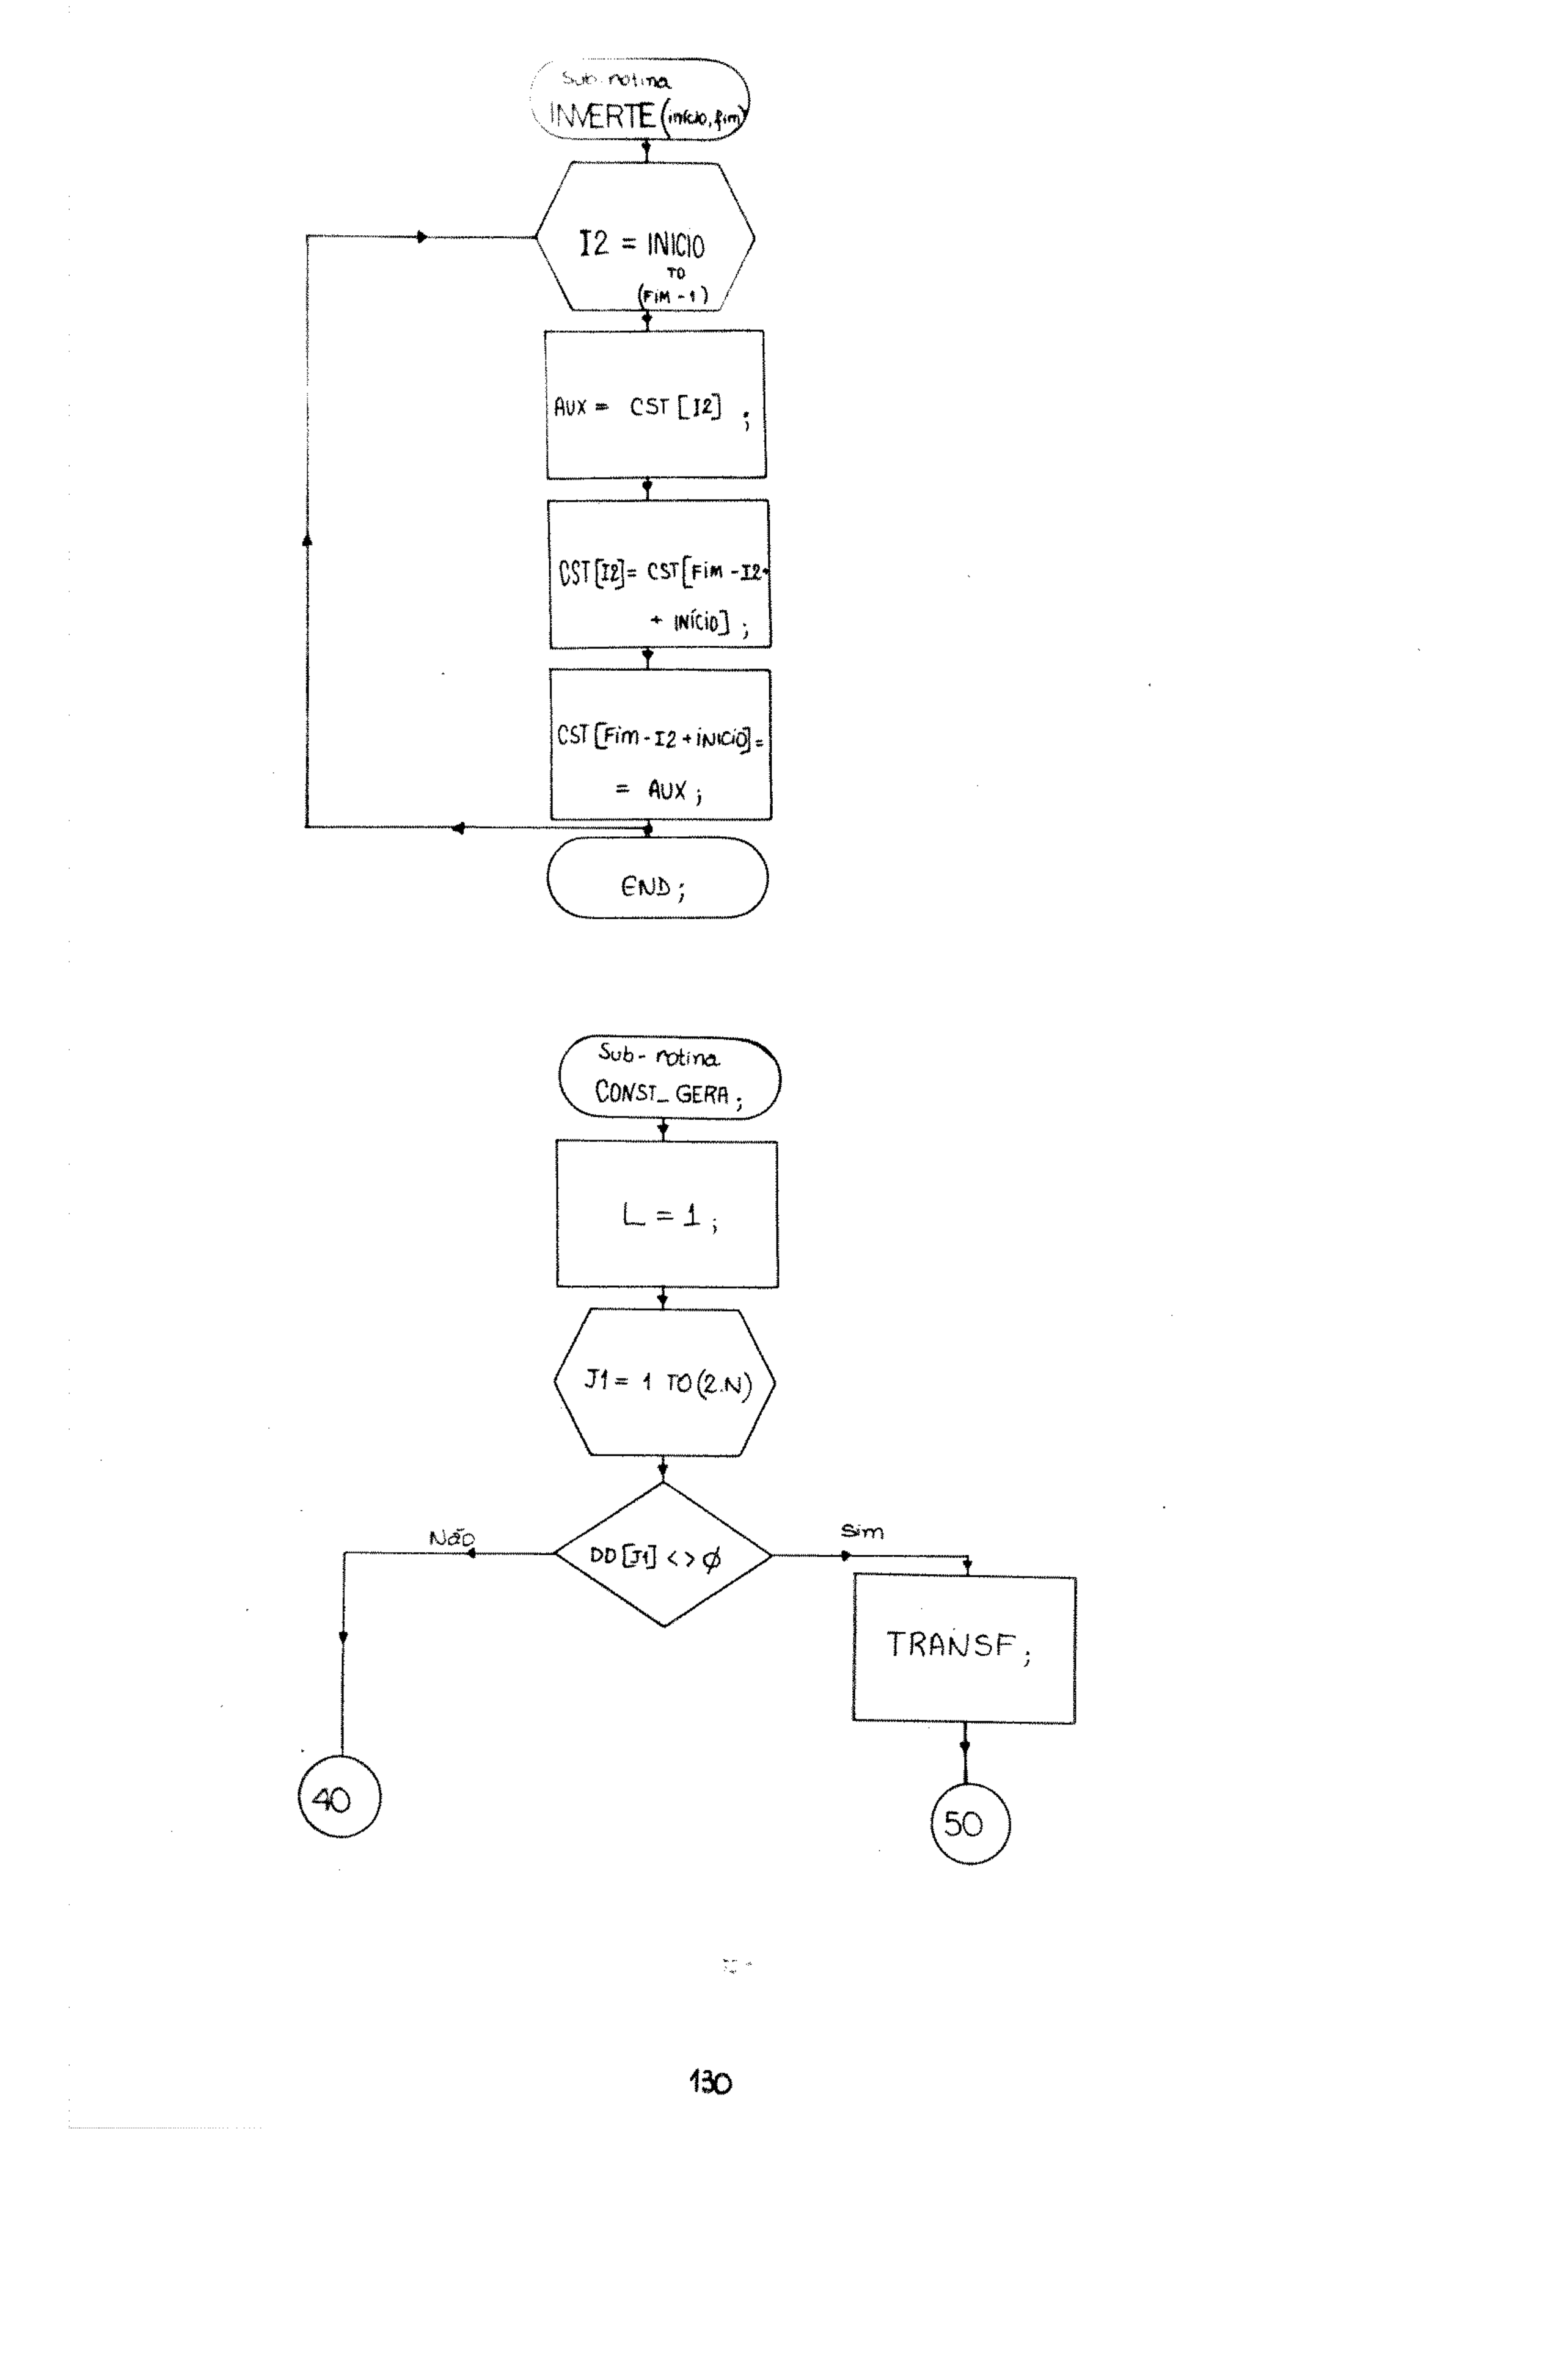 Sub-rotina
INVERTE (início, fim)
I2 = INICIO
TO
(FIM - 1)
AUX = CST [I2] ;
CST [I2] = CST [FIM - I2 +
+ INÍCIO] ;
CST [FIM - I2 + INICIO] =
= AUX ;
END ;
Sub-rotina
CONST_ GERA ;
L = 1 ;
J1 = 1 TO (2.N)
Não
DD [J1] < > ∅
Sim
TRANSF ;
40
50
130